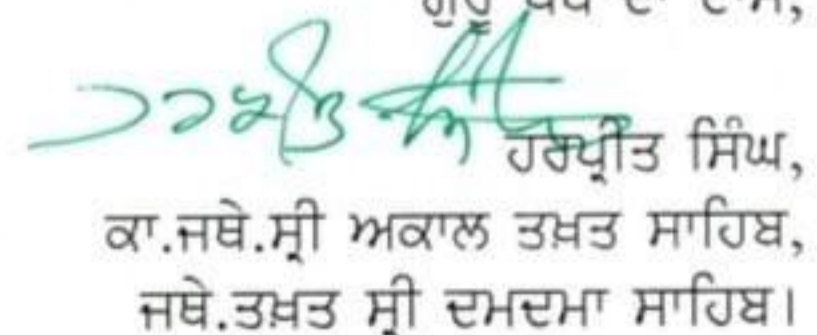 ਗੁਰੂ ਪੰਥ ਦਾ ਦਾਸ,
ਹਰਪ੍ਰੀਤ ਸਿੰਘ,
ਕਾ.ਜਥੇ.ਸ੍ਰੀ ਅਕਾਲ ਤਖ਼ਤ ਸਾਹਿਬ,
ਜਥੇ.ਤਖ਼ਤ ਸ੍ਰੀ ਦਮਦਮਾ ਸਾਹਿਬ।